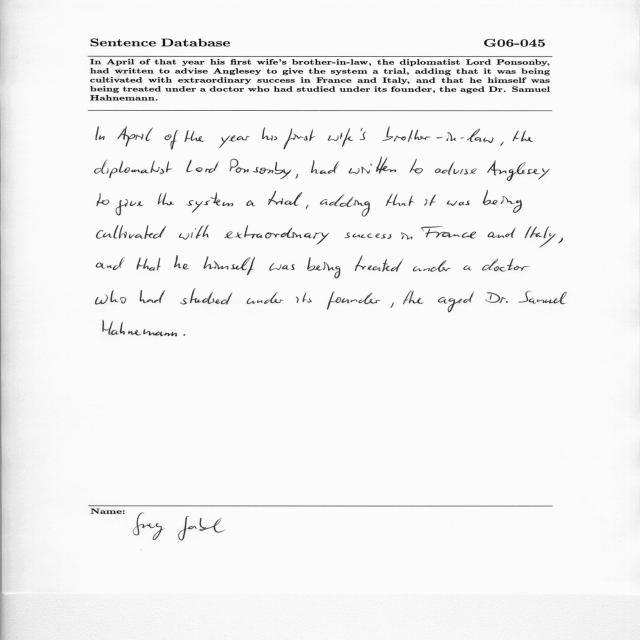 Sentence Database G06-045
In April of that year his first wife's brother-in-law, the diplomatist Lord Ponsonby,
had written to advise Anglesey to give the system a trial, adding that it was being
cultivated with extraordinary success in France and Italy, and that he himself was
being treated under a doctor who had studied under its founder, the aged Dr. Samuel
Hahnemann.
In April of the year his first wife's brother-in-law, the
diplomatist Lord Ponsonby, had written to advise Anglesey
to give the system a trial, adding that it was being
cultivated with extraordinary success in France and Italy,
and that he himself was being treated under a doctor
who had studied under its founder, the aged Dr. Samuel
Hahnemann.
Name: